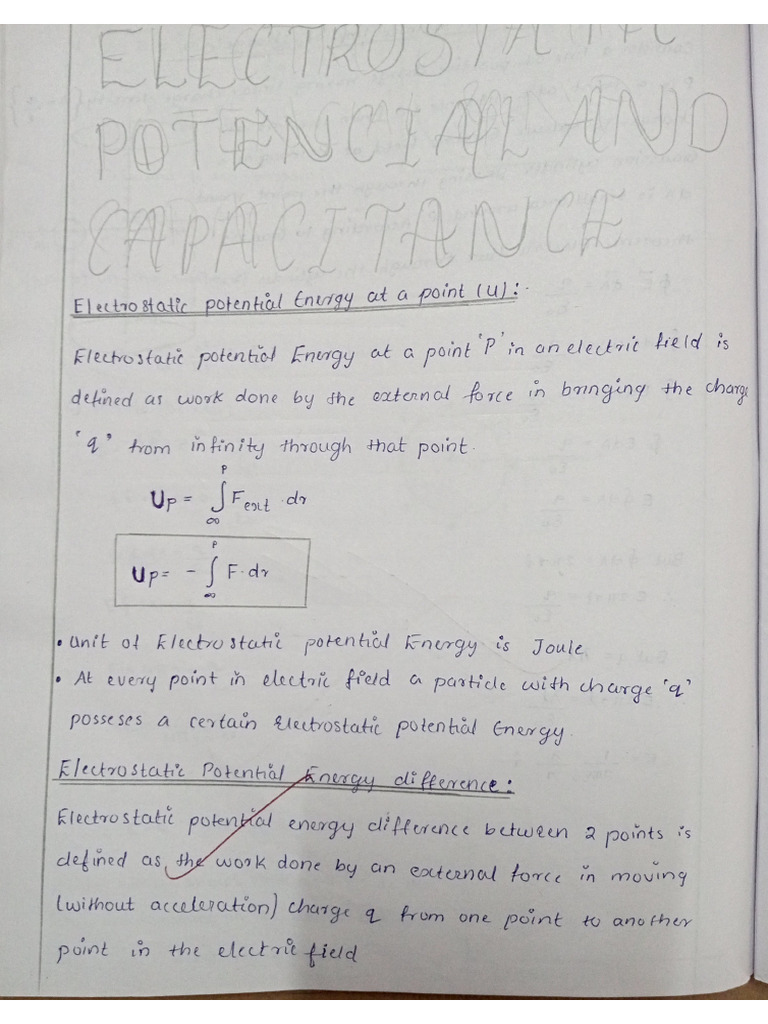 ELECTROSTATIC
POTENCIAL AND
CAPACITANCE
Electrostatic potential Energy at a point (U):-
Electrostatic potential Energy at a point 'P' in an electric field is
defined as work done by the external force in bringing the charge
'q' from infinity through that point.
Up = ∫_∞^P Fext · dr
Up = - ∫_∞^P F · dr
• Unit of Electrostatic potential Energy is Joule
• At every point in electric field a particle with charge 'q'
posseses a certain Electrostatic potential Energy.
Electrostatic Potential Energy difference:
Electrostatic potential energy difference between 2 points is
defined as the work done by an external force in moving
(without acceleration) charge q from one point to another
point in the electric field